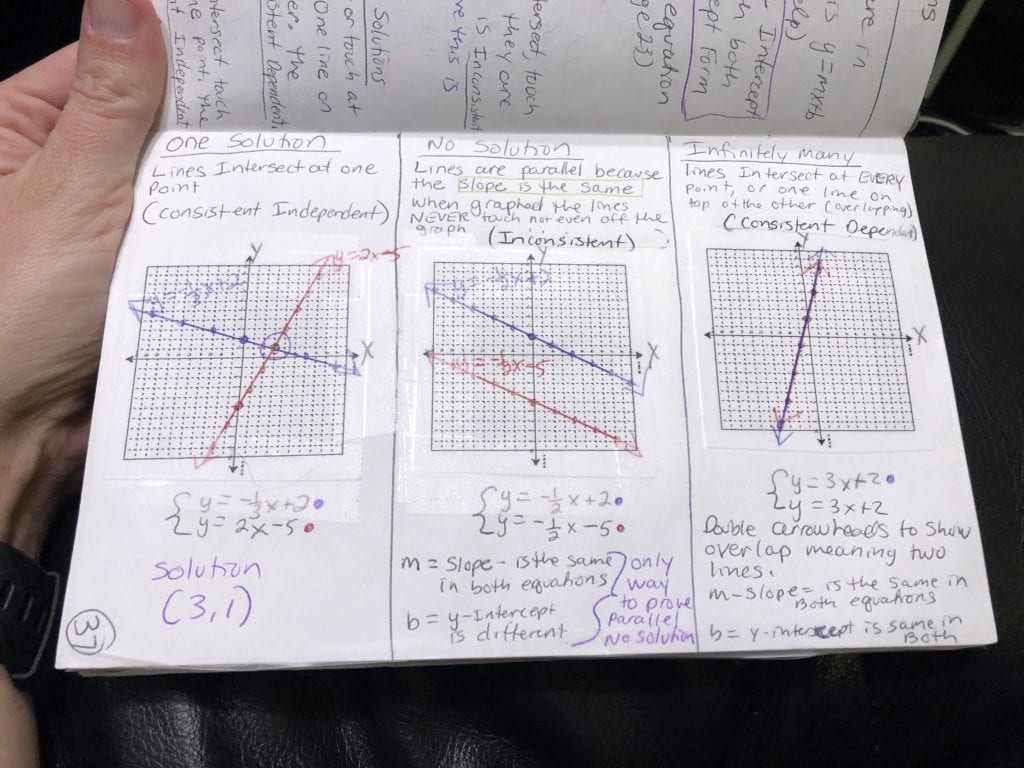 ere in
help)
is y=mxtb
Intercept
h both
cept Form
equation
ge 23)
tersect, touch
they are
is Inconsistent
this is
Solutions
or touch at
One line on
er. The
Dependent
ntersect touch
ne point. The
t Independent
One Solution
Lines Intersect at one
Point
(consistent Independent)
y
y=2x-5
y=-1/3x+2
X
{y=-1/3x+2
{y=2x-5
Solution
(3,1)
37
No Solution
Lines are parallel because
the slope is the same
when graphed the lines
NEVER touch not even off the
graph
(Inconsistent)
y
X
{y=-1/2x+2
{y=-1/2x-5
m = Slope - is the same
in both equations
b = y-Intercept
is different
only
way
to prove
parallel
No solution
Infinitely many
Lines Intersect at EVERY
Point, or one line on
top of the other (overlapping)
(Consistent Dependent)
y
X
{y=3x+2
{y=3x+2
Double arrowheads to show
overlap meaning two
lines.
m-slope= is the same in
Both equations
b= y-intercept is same in
Both